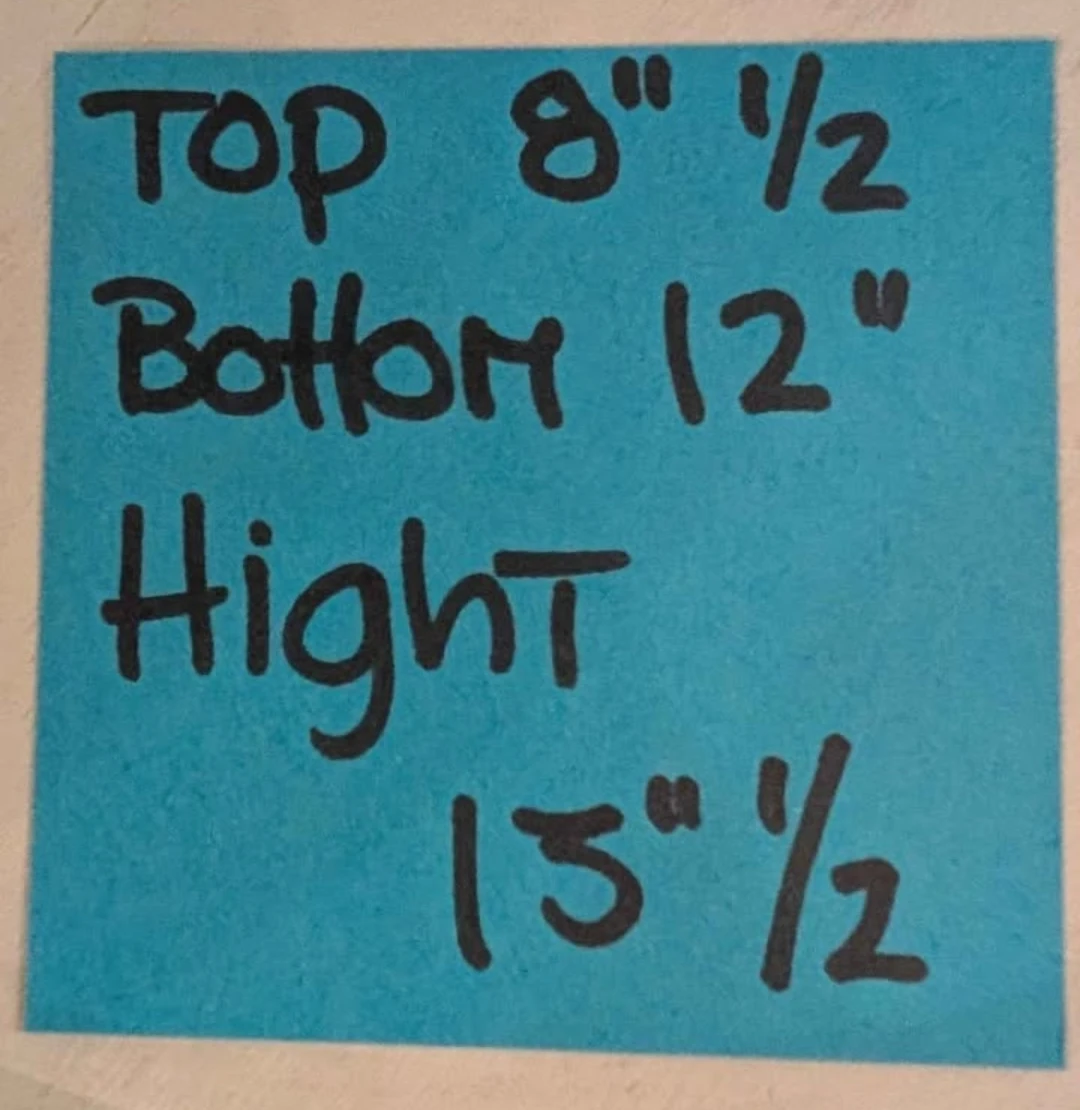 TOP 8" 1/2
Bottom 12"
HighT
15" 1/2